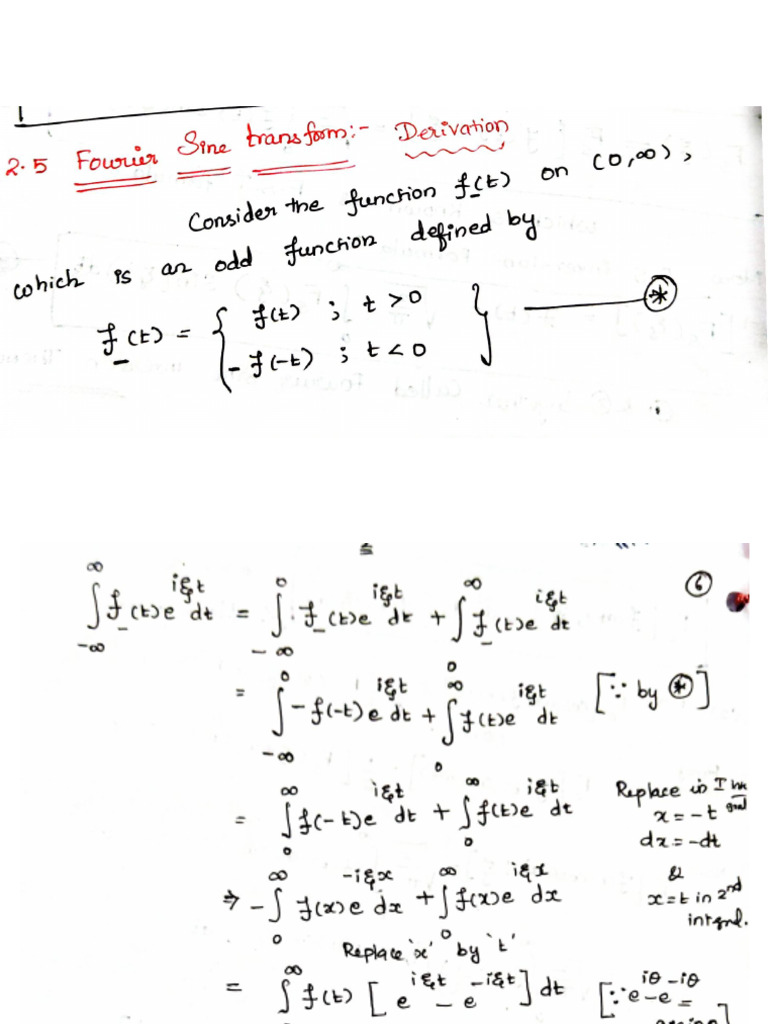 2.5 Fourier Sine transform:- Derivation
Consider the function f_(t) on (0,∞),
which is an odd function defined by
f_(t) = { f(t) ; t > 0
- f(-t) ; t < 0 } ——— (*)
∫_{-∞}^{∞} f_(t) e^{iξt} dt = ∫_{-∞}^{0} f_(t) e^{iξt} dt + ∫_{0}^{∞} f_(t) e^{iξt} dt
6
= ∫_{-∞}^{0} - f(-t) e^{iξt} dt + ∫_{0}^{∞} f(t) e^{iξt} dt [∵ by (*)]
= ∫_{0}^{∞} f(-t) e^{iξt} dt + ∫_{0}^{∞} f(t) e^{iξt} dt
Replace in I
x = -t
dx = -dt
&
x = t in 2nd
intgral.
⇒ - ∫_{0}^{∞} f(x) e^{-iξx} dx + ∫_{0}^{∞} f(x) e^{iξx} dx
Replace 'x' by 't'
= ∫^{∞} f(t) [e^{iξt} - e^{-iξt}] dt [∵ e^{iθ} - e^{-iθ} =